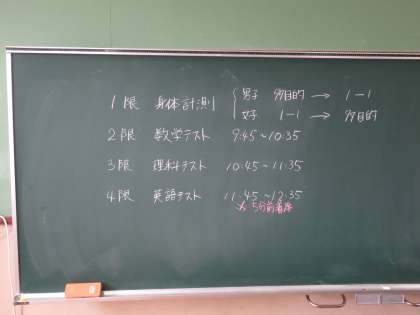 1限 身体計測 男子 多目的 → 1-1
女子 1-1 → 多目的
2限 数学テスト 9:45~10:35
3限 理科テスト 10:45~11:35
4限 英語テスト 11:45~12:35
※5分前着席